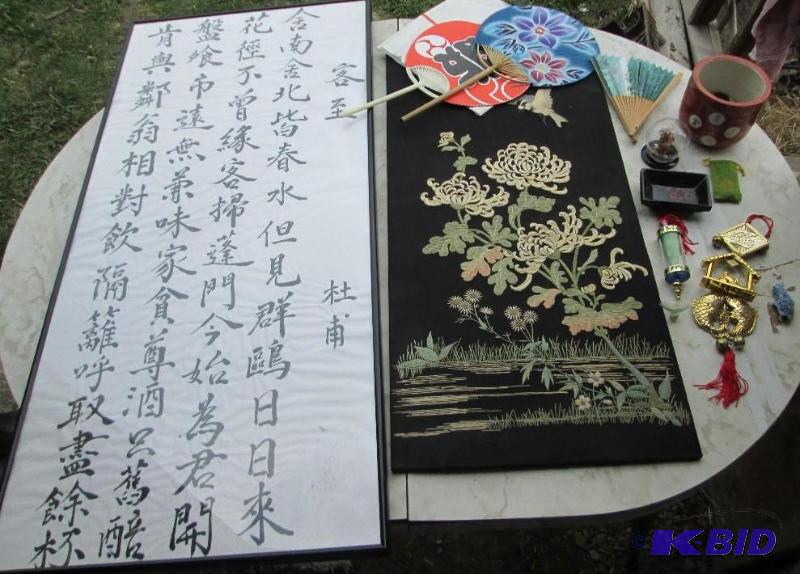 客至 杜甫
舍南舍北皆春水但見群鷗日日來
花徑不曾緣客掃蓬門今始為君開
盤飧市遠無兼味家貧尊酒只舊醅
肯與鄰翁相對飲隔籬呼取盡餘杯
© K-BID